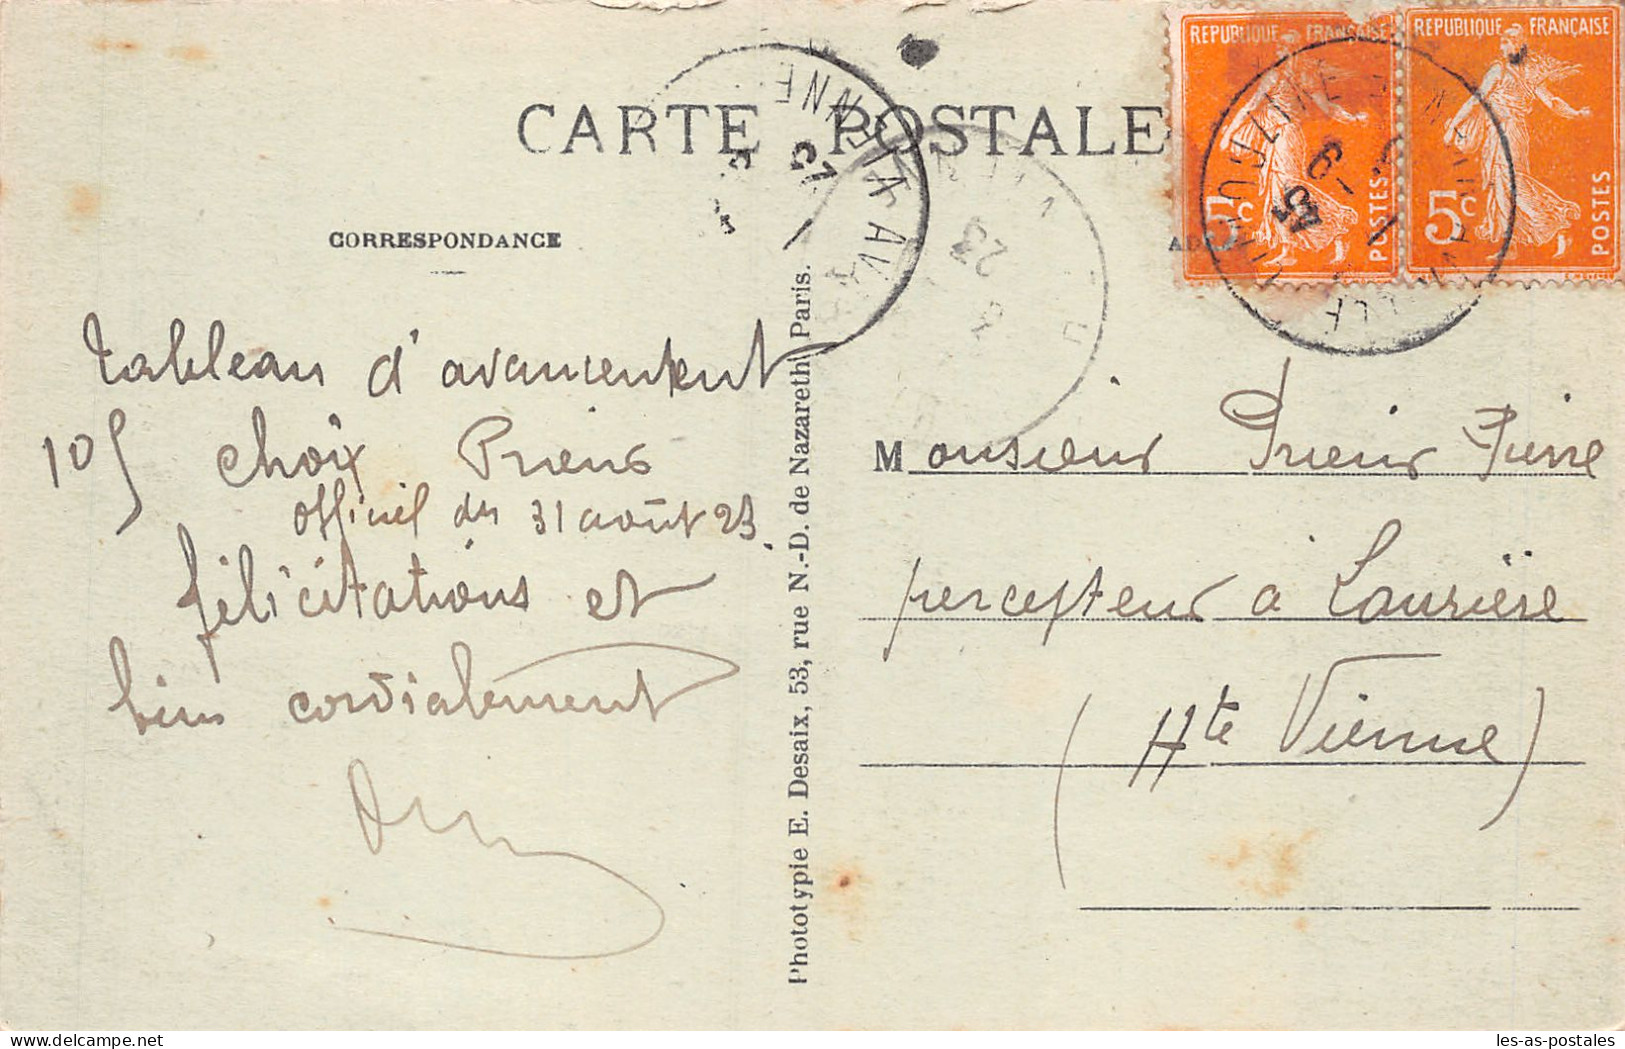 CARTE POSTALE
REPUBLIQUE FRANÇAISE
REPUBLIQUE FRANÇAISE
5c
POSTES
5c
POSTES
CORRESPONDANCE
tableau d'avancement
105 choix Prieur
officiel du 31 août 23
félicitations et
bien cordialement
Phototypie E. Desaix, 53, rue N.-D. de Nazareth, Paris.
Monsieur Prieur Pierre
percepteur à Laurière
(Hte Vienne)
les-as-postales